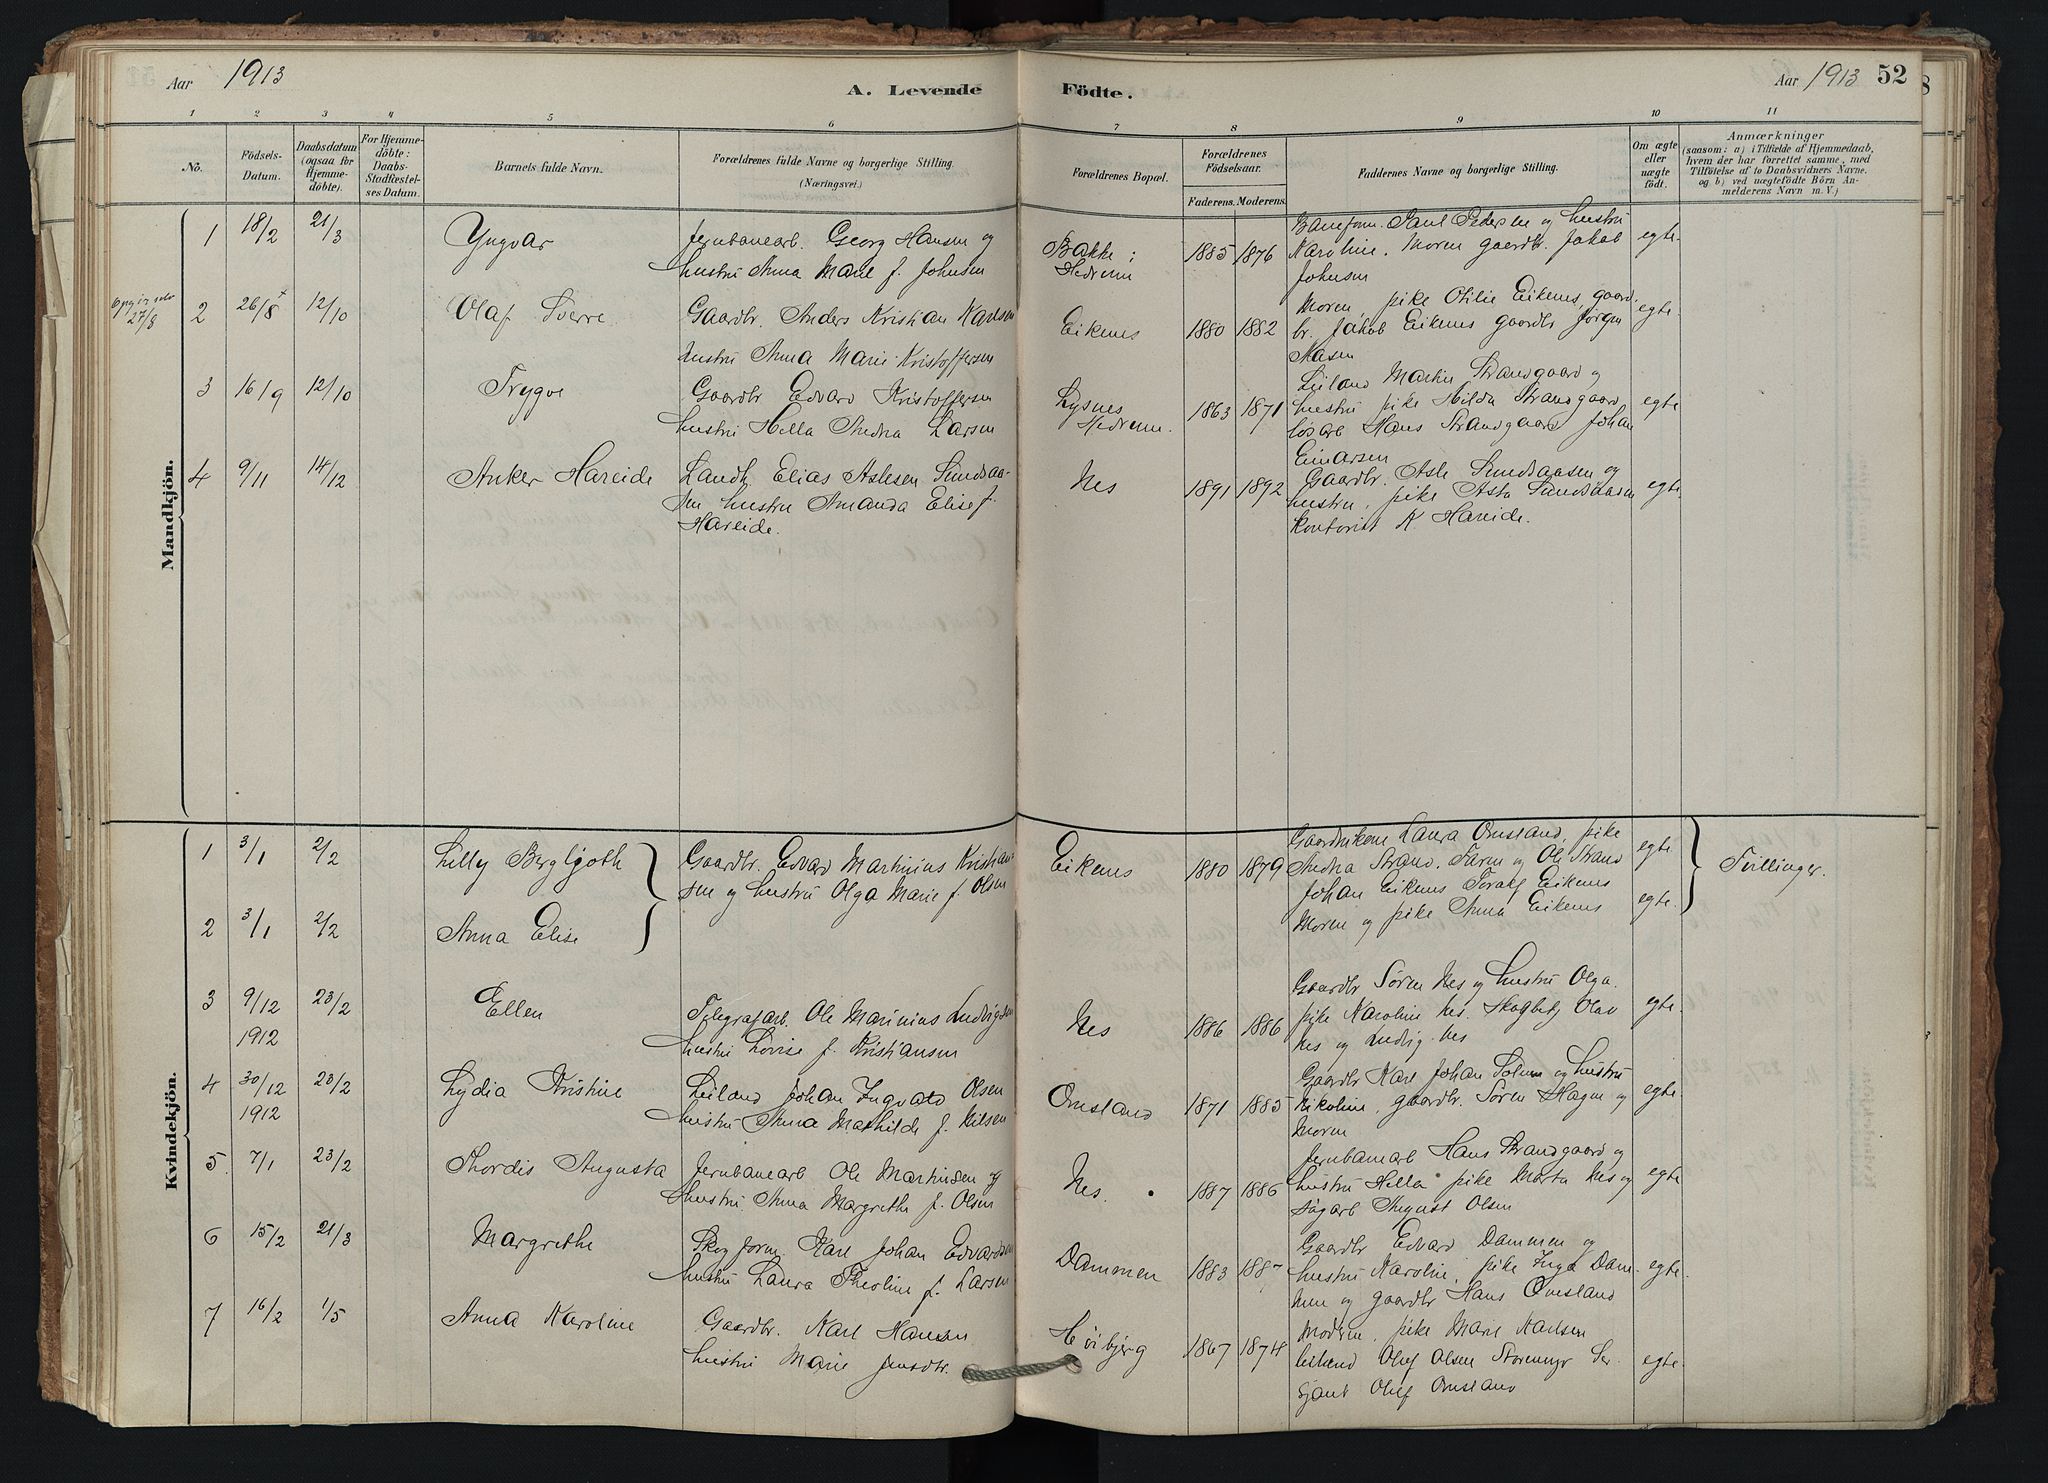 Aar 1913
A. Levende Födte.
Aar 1913 52
1 2 3 4 5 6 7 8 9 10 11
No.
Födsels-
Datum.
Daabsdatum
(ogsaa for
Hjemme-
döbte).
For Hjemme-
döbte:
Daabs-
Stadfæstel-
ses Datum.
Barnets fulde Navn.
Forældrenes fulde Navne og borgerlige Stilling.
(Næringsvei.)
Forældrenes Bopæl.
Forældrenes
Födselsaar.
Faderens. Moderens.
Faddernes Navne og borgerlige Stilling.
Om ægte
eller
uægte
födt.
Anmærkninger
(saasom: a) i Tilfælde af Hjemmedaab,
hvem der har forrettet samme, med
Tilföielse af to Daabsvidners Navne,
og b) ved uægtefödte Börn An-
melderens Navn m. V.)
Mandkjön.
1 18/2 21/3 Yngvar
Jernbanearb. Georg Hansen og
hustru Anna Marie f. Johnsen
Bakke i
Hedrum
1885 1876
Banefom. Paul Pedersen og hustru
Karoline. Moren gaardbr. Jakob
Johnsen
egte
27/8
2 26/8 12/10 Olaf Sverre
Gaardbr. Anders Kristian Karlsen
hustru Anna Marie Kristoffersen
Eikenes 1880 1882
Moren, pike Otilie Eikenes, gaard-
br. Jakob Eikenes gaardbr Jørgen
Aasen
egte
3 16/9 12/10 Trygve
Gaardbr Edvard Kristoffersen
hustru Hella Andrea Larsen
Lysnes
Hedrum.
1863 1871
Leiland Martin Strandgaard og
hustru pike Hilda Strandgaard,
løsarb Hans Strandgaard Johan
Einarsen
egte
4 9/11 14/12 Anker Hareide
Landh. Elias Aslesen Sundsaa-
sen hustru Amanda Elise f.
Hareide.
Nes 1891 1892
Gaardbr. Asle Sundsaasen og
hustru, pike Asta Sundsaasen
kontorist K Hareide.
egte
Kvindekjön.
1 3/1 2/2 Lilly Bergljoth
Gaardbr. Edvard Martinius Kristian-
sen og hustru Olga Marie f Olsen
Eikenes 1880 1879
Gaardmkone Laura Omsland, pike
Andrea Strand. Faren og Ole Strand
Johan Eikenes Toralf Eikenes
Moren og pike Anna Eikenes
egte
Tvillinger.
2 3/1 2/2 Anna Elise
egte
3 9/12 23/2 Ellen
1912
Telegrafarb. Ole Marinius Ludvigsen
hustru Lovise f. Kristiansen
Nes 1886 1886
Gaardbr Søren Nes og hustru Olga.
pike Karoline Nes. Skogbetj Olav
Nes og Ludvig Nes
egte
4 30/12 23/2 Lydia Kristine
1912
Leiland Johan Ingvald Olsen
hustru Anna Mathilde f. Nilsen
Omsland 1871 1885
Gaardbr Karl Johan Solum og hustru
Nikoline, gaardbr. Søren Hagen og
Moren
egte
5. 7/1 23/2 Thordis Augusta
Jernbanearb Ole Martinsen og
hustru Anna Margrethe f. Olsen
Nes. 1887 1886
Jernbanearb Hans Strandgaard og
hustru Hella pike Marta Nes og
sagarb August Olsen
egte
6 15/2 21/3 Margrethe
Skogform. Karl Johan Edvardsen
hustru Laura Theoline f. Larsen
Dammen 1883 1887
Gaardbr Edvard Dammen og
hustru Karoline, pike Inga Dam-
men og gaardbr Hans Omsland
egte
7 16/2 1/5 Anna Karoline
Gaardbr. Karl Hansen
hustru Marie Jensdtr.
Høibjerg 1867 1874
Moderen, pike Marie Karlsen
leiland Oluf Olsen Storemyr Ser-
sjant Oluf Omsland
egte